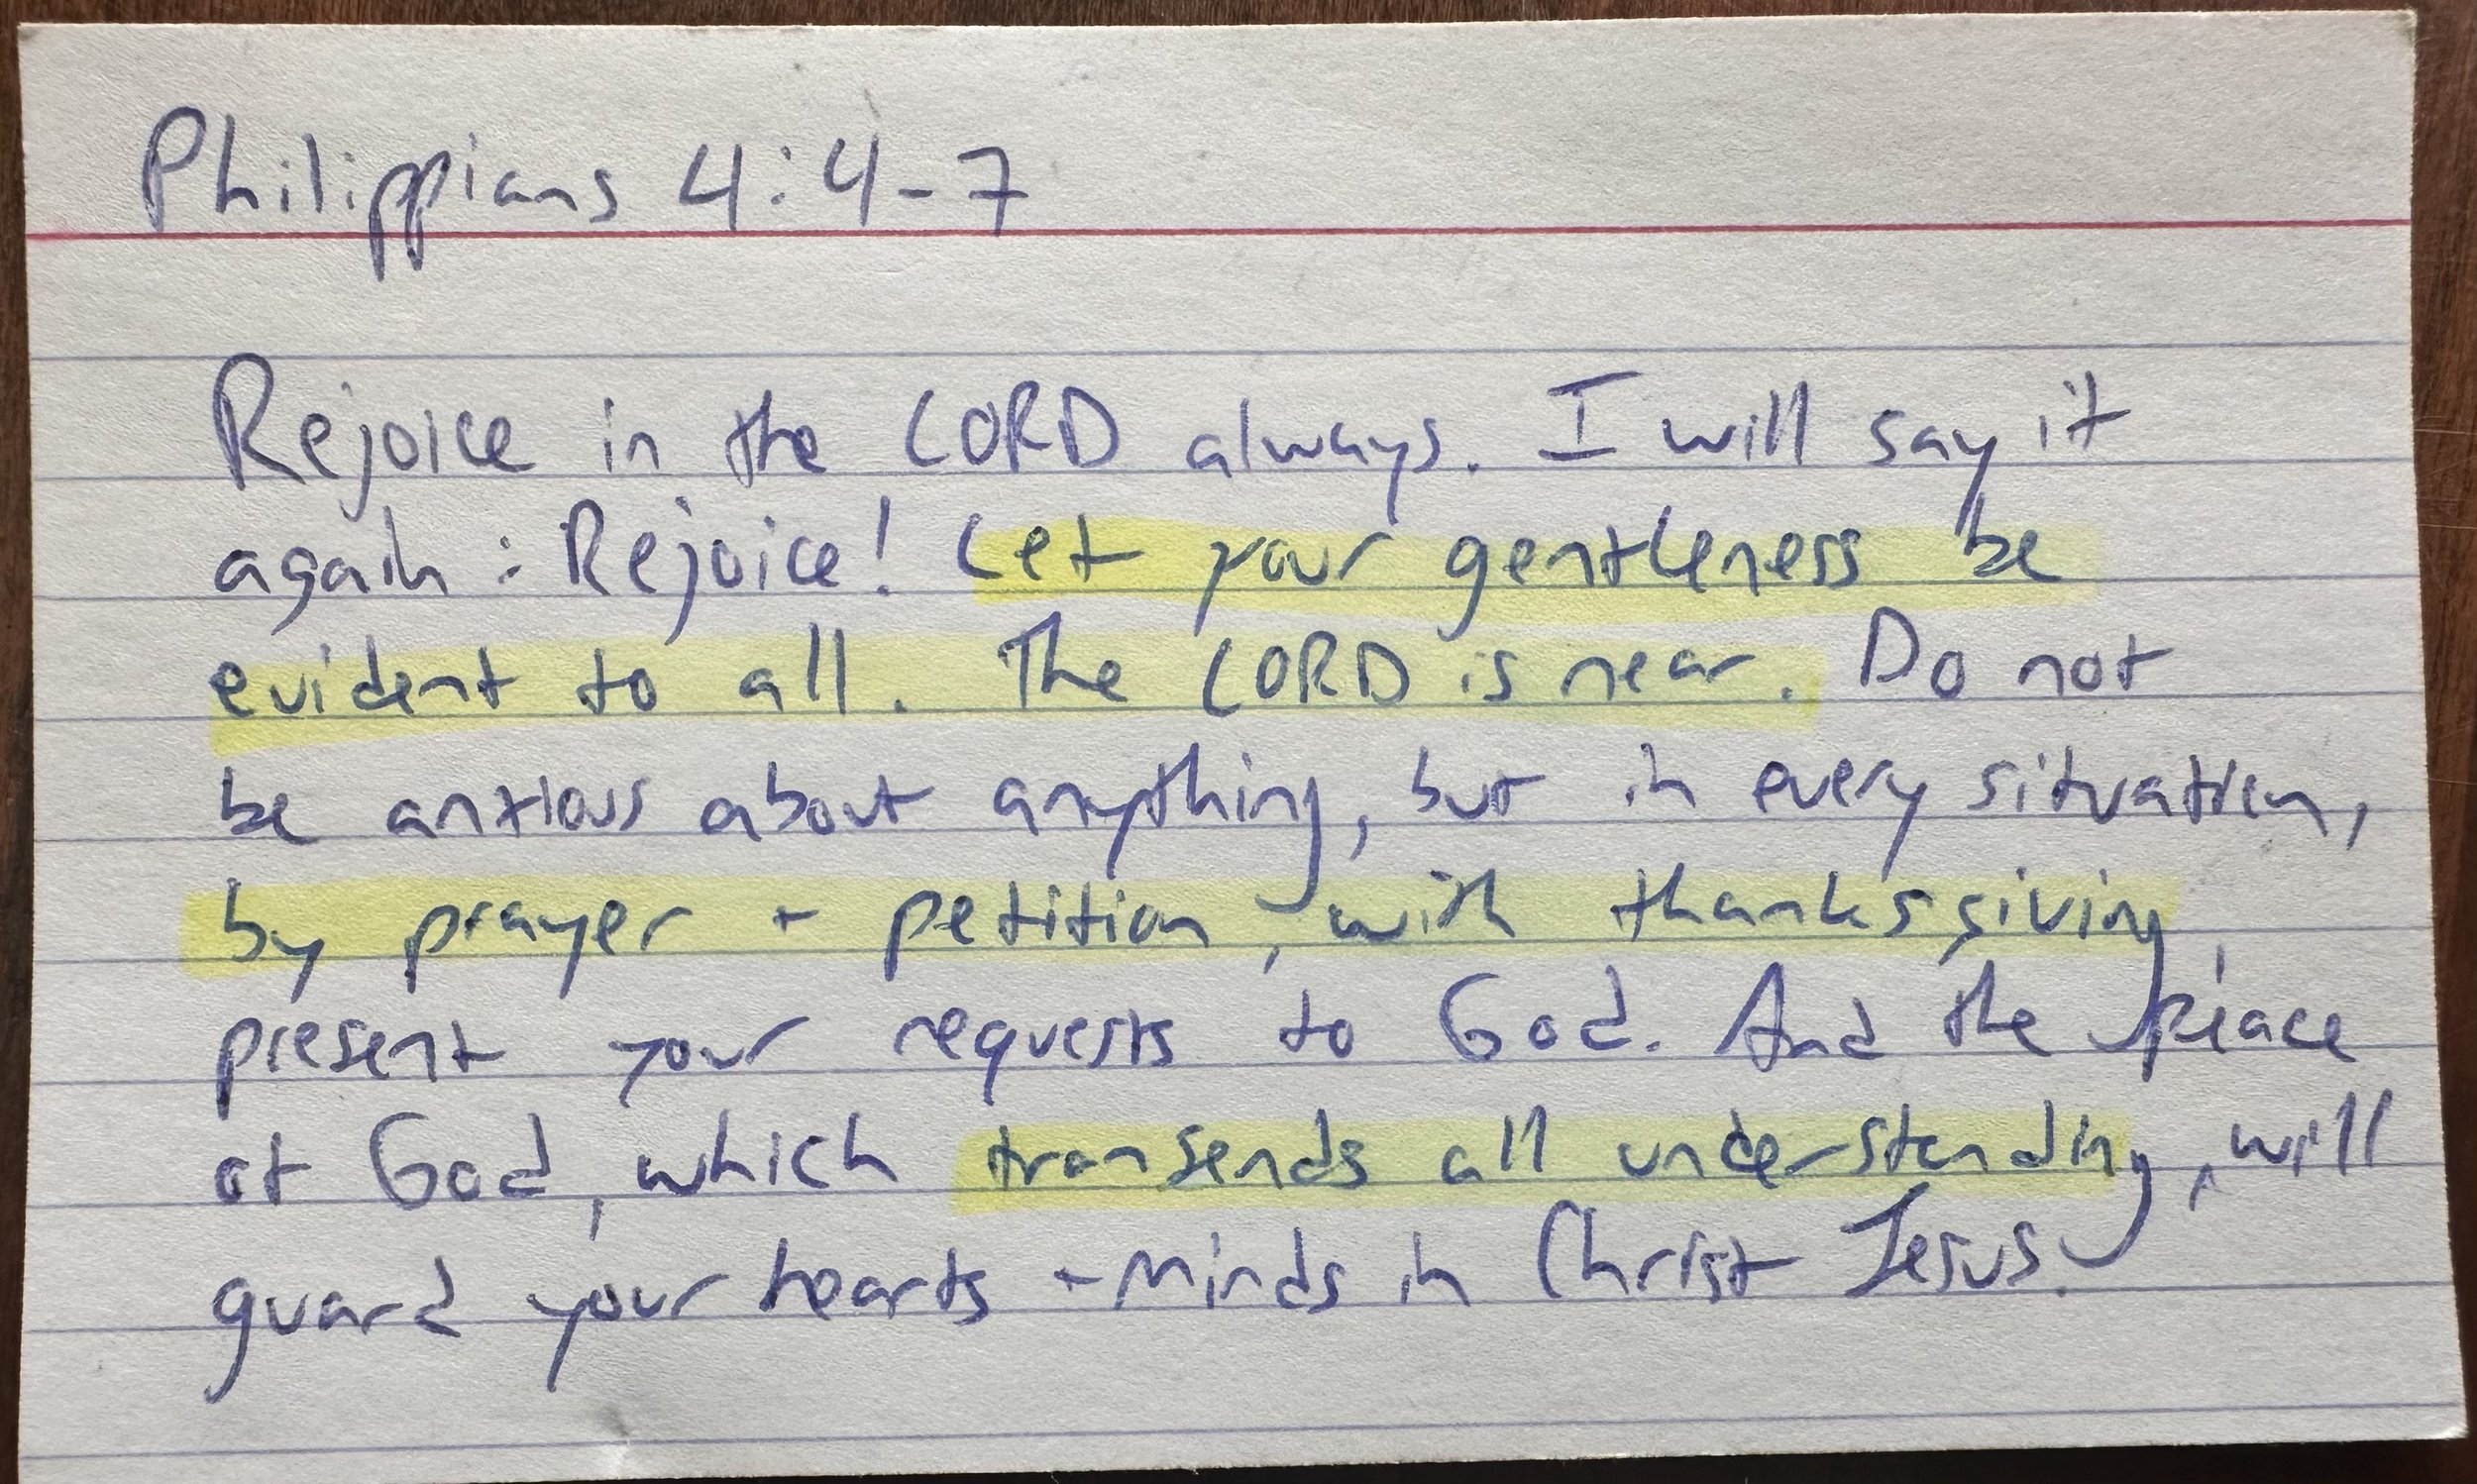 Philippians 4:4-7
Rejoice in the LORD always. I will say it
again: Rejoice! Let your gentleness be
evident to all. The LORD is near. Do not
be anxious about anything, but in every situation,
by prayer + petition, with thanksgiving,
present your requests to God. And the peace
of God, which transends all understanding, will
guard your hearts + minds in Christ Jesus.